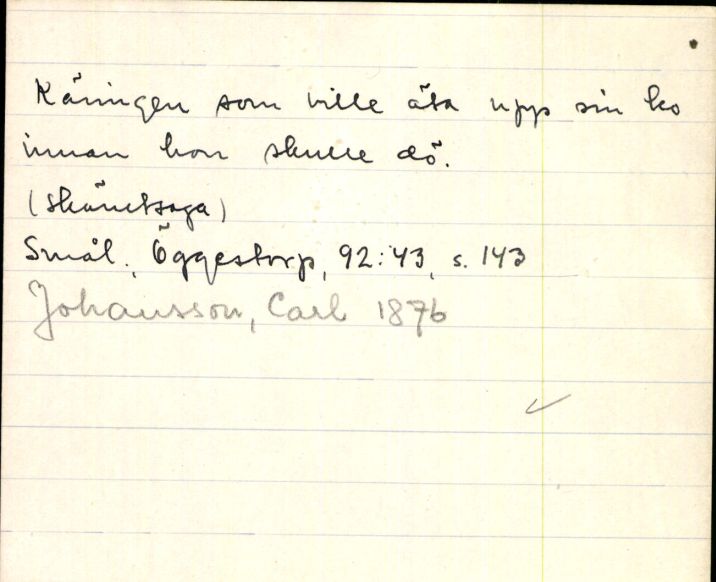 Käringen som ville äta upp sin ko
innan hon skulle dö.
(skämtsaga)
Smål., Öggestorp, 92:43, s. 143
Johansson, Carl 1876